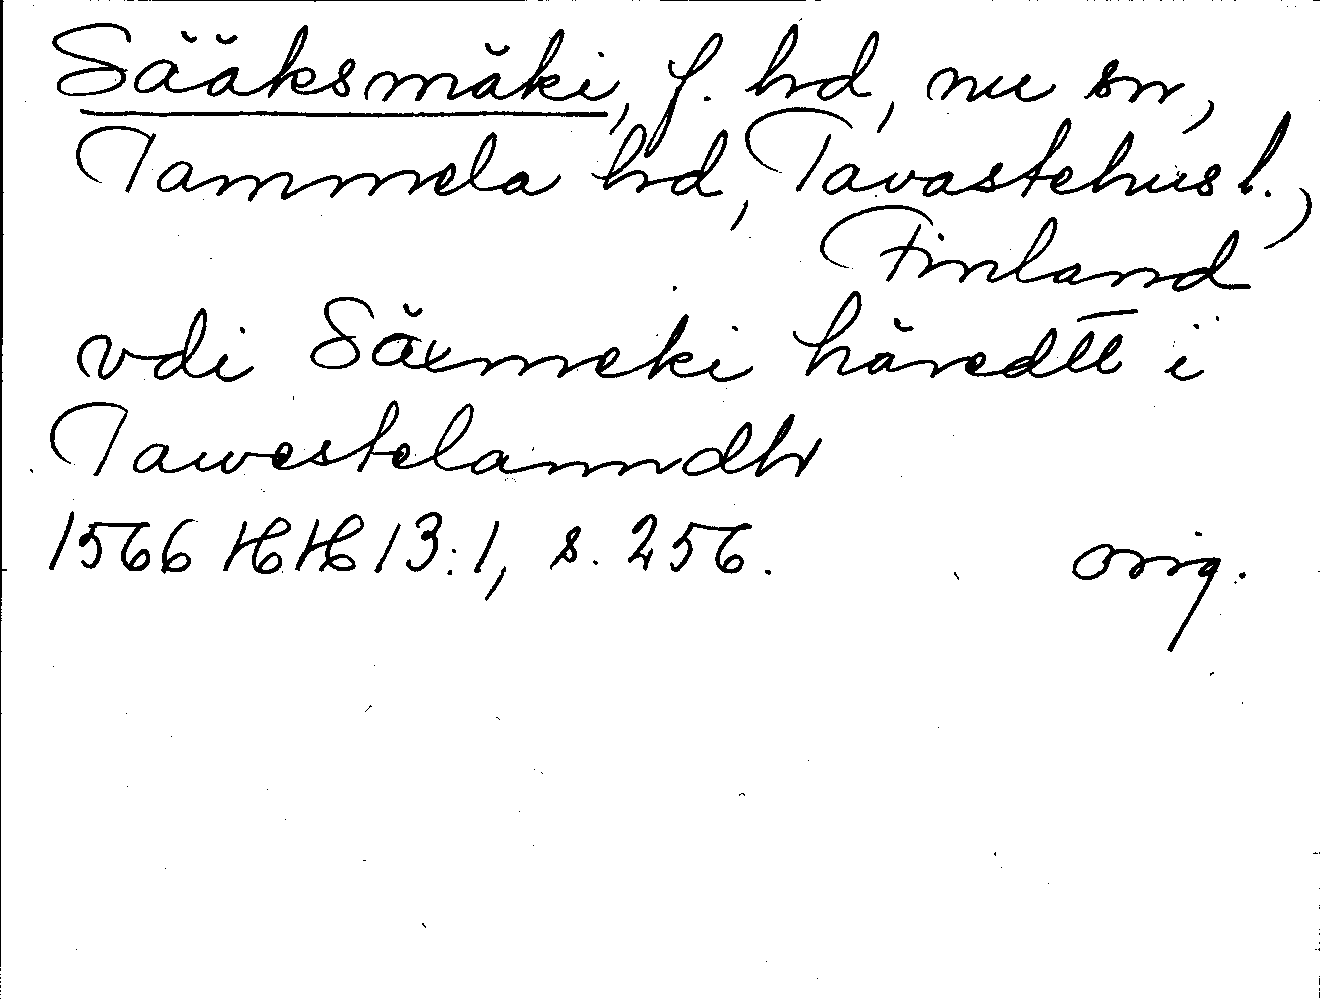 Sääksmäki, f. hd, nu sn,
Tammela hd, Tavastehus l.,
Finland
vdi Säxmeki häredtt i
Tawestelanndh
1566 HH 13:1, s. 256. orig.